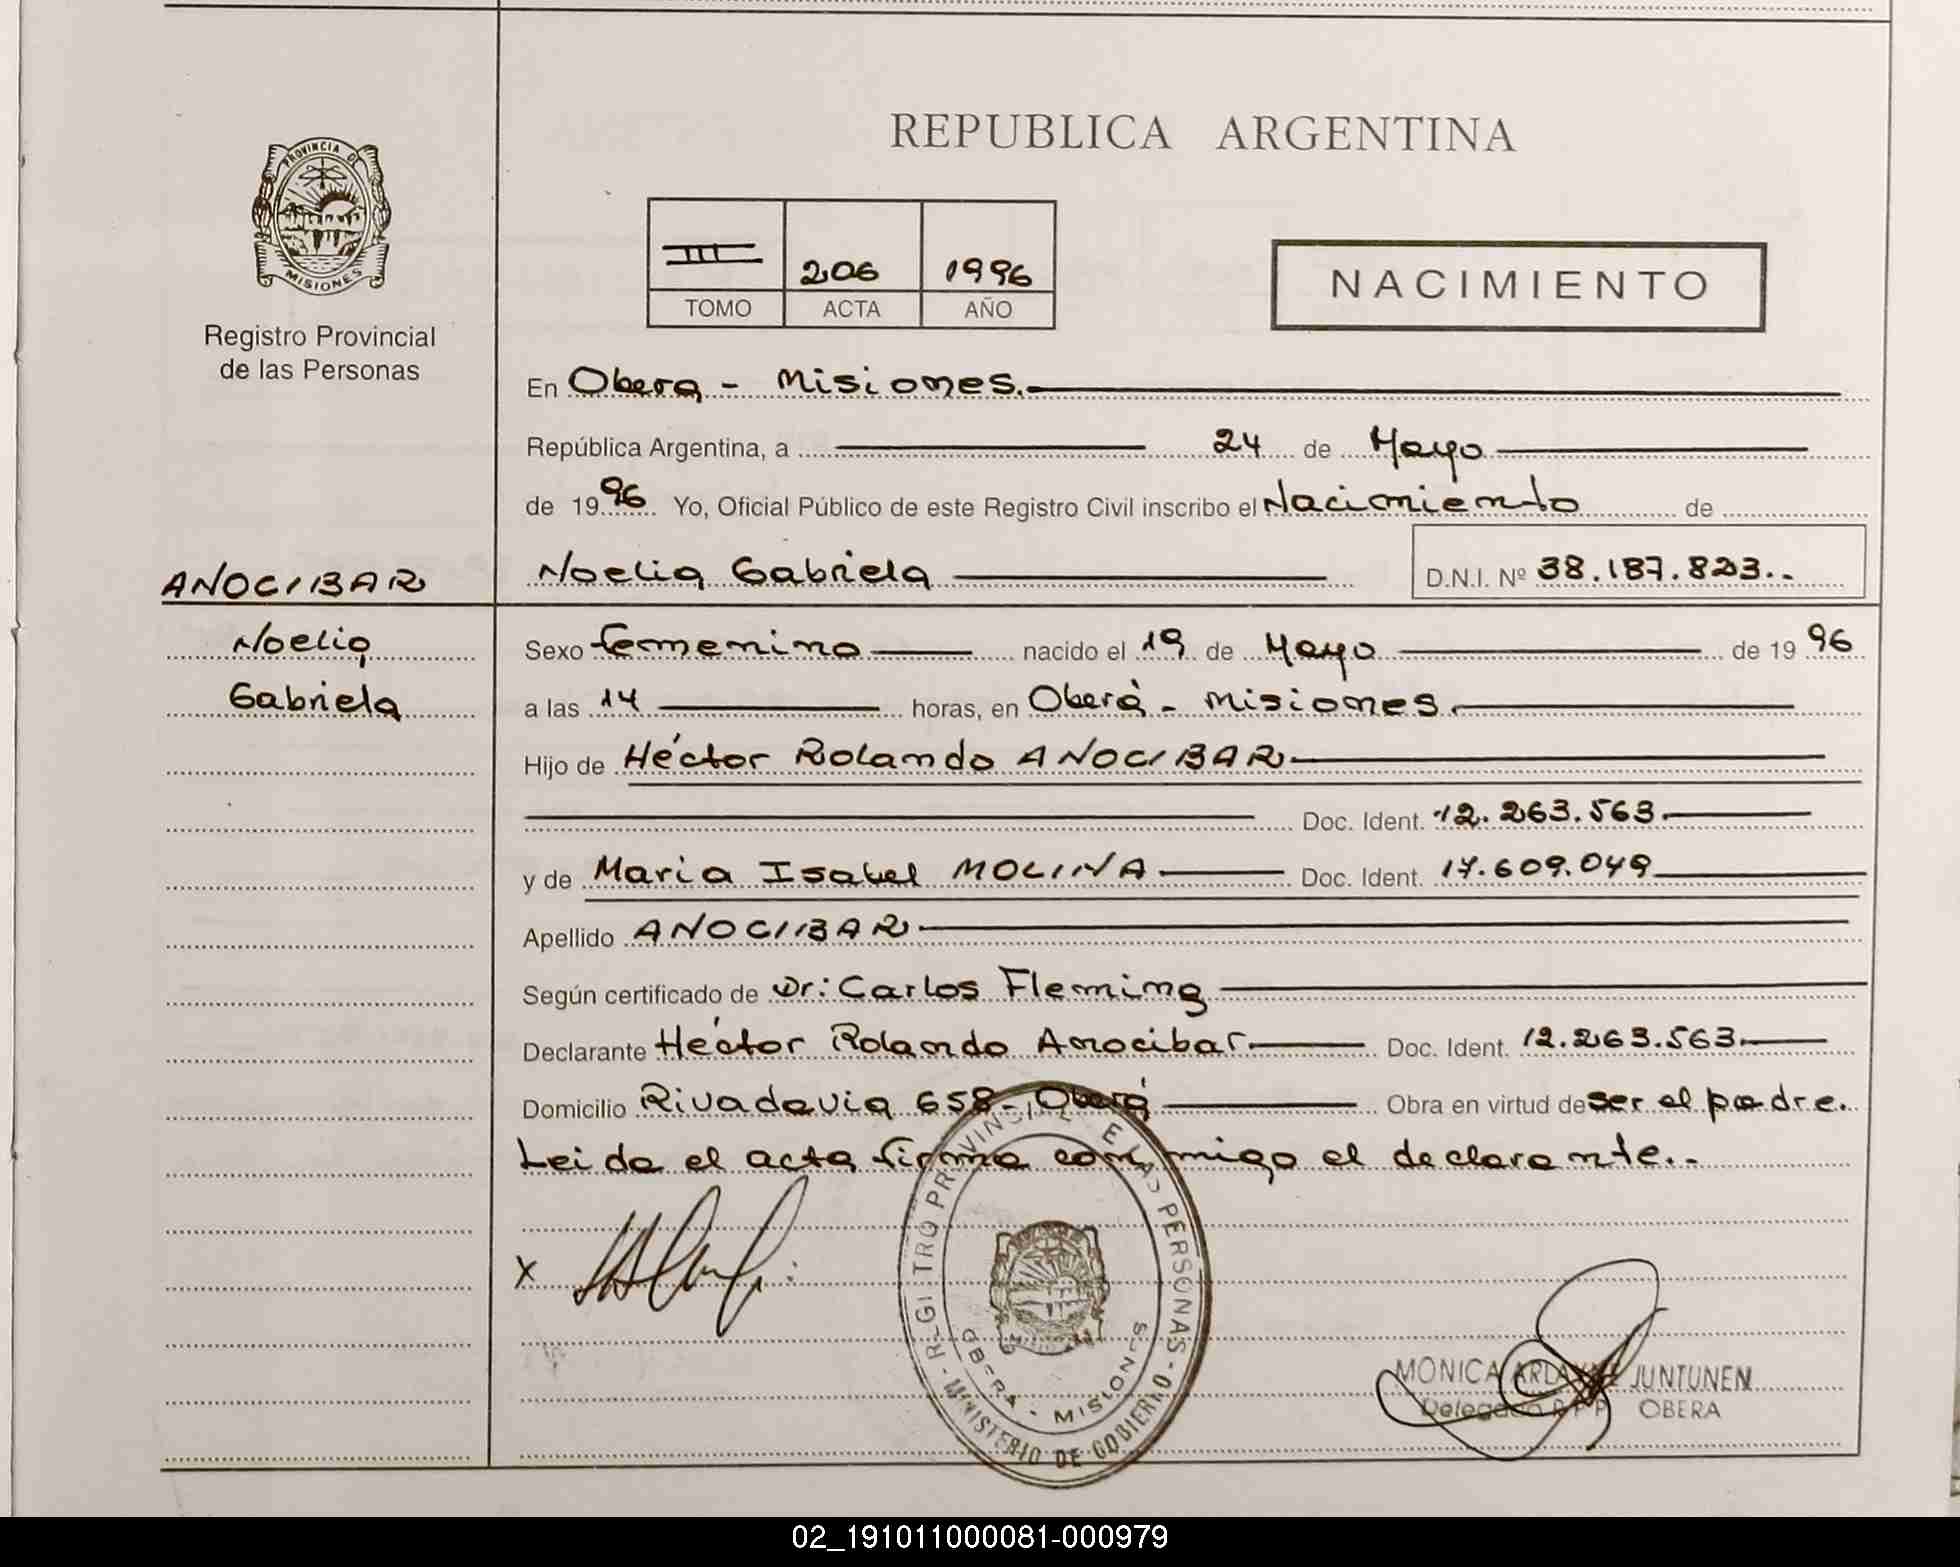 REPUBLICA ARGENTINA
PROVINCIA DE
MISIONES
Registro Provincial
de las Personas
III 206 1996
TOMO ACTA AÑO
NACIMIENTO
En Obera - Misiones.
República Argentina, a 24 de Mayo
de 1996 Yo, Oficial Público de este Registro Civil inscribo el Nacimiento de
Noelia Gabriela D.N.I. Nº 38.187.823..
ANOCIBAR
Noelia
Gabriela
Sexo femenino nacido el 19 de Mayo de 1996
a las 14 horas, en Oberá - Misiones.
Hijo de Héctor Rolando ANOCIBAR
Doc. Ident. 12.263.563.
y de Maria Isabel MOLINA Doc. Ident. 17.609.049
Apellido ANOCIBAR
Según certificado de Dr: Carlos Fleming
Declarante Héctor Rolando Anocibar. Doc. Ident. 12.263.563.
Domicilio Rivadavia 658 - Oberá Obra en virtud de ser el padre.
Leida el acta firma conmigo el declarante..
X
REGISTRO PROVINCIAL DE LAS PERSONAS
OBERA - MISIONES
MINISTERIO DE GOBIERNO
MONICA ARLAYNE JUNTUNEN
Delegado R P P OBERA
02_191011000081-000979